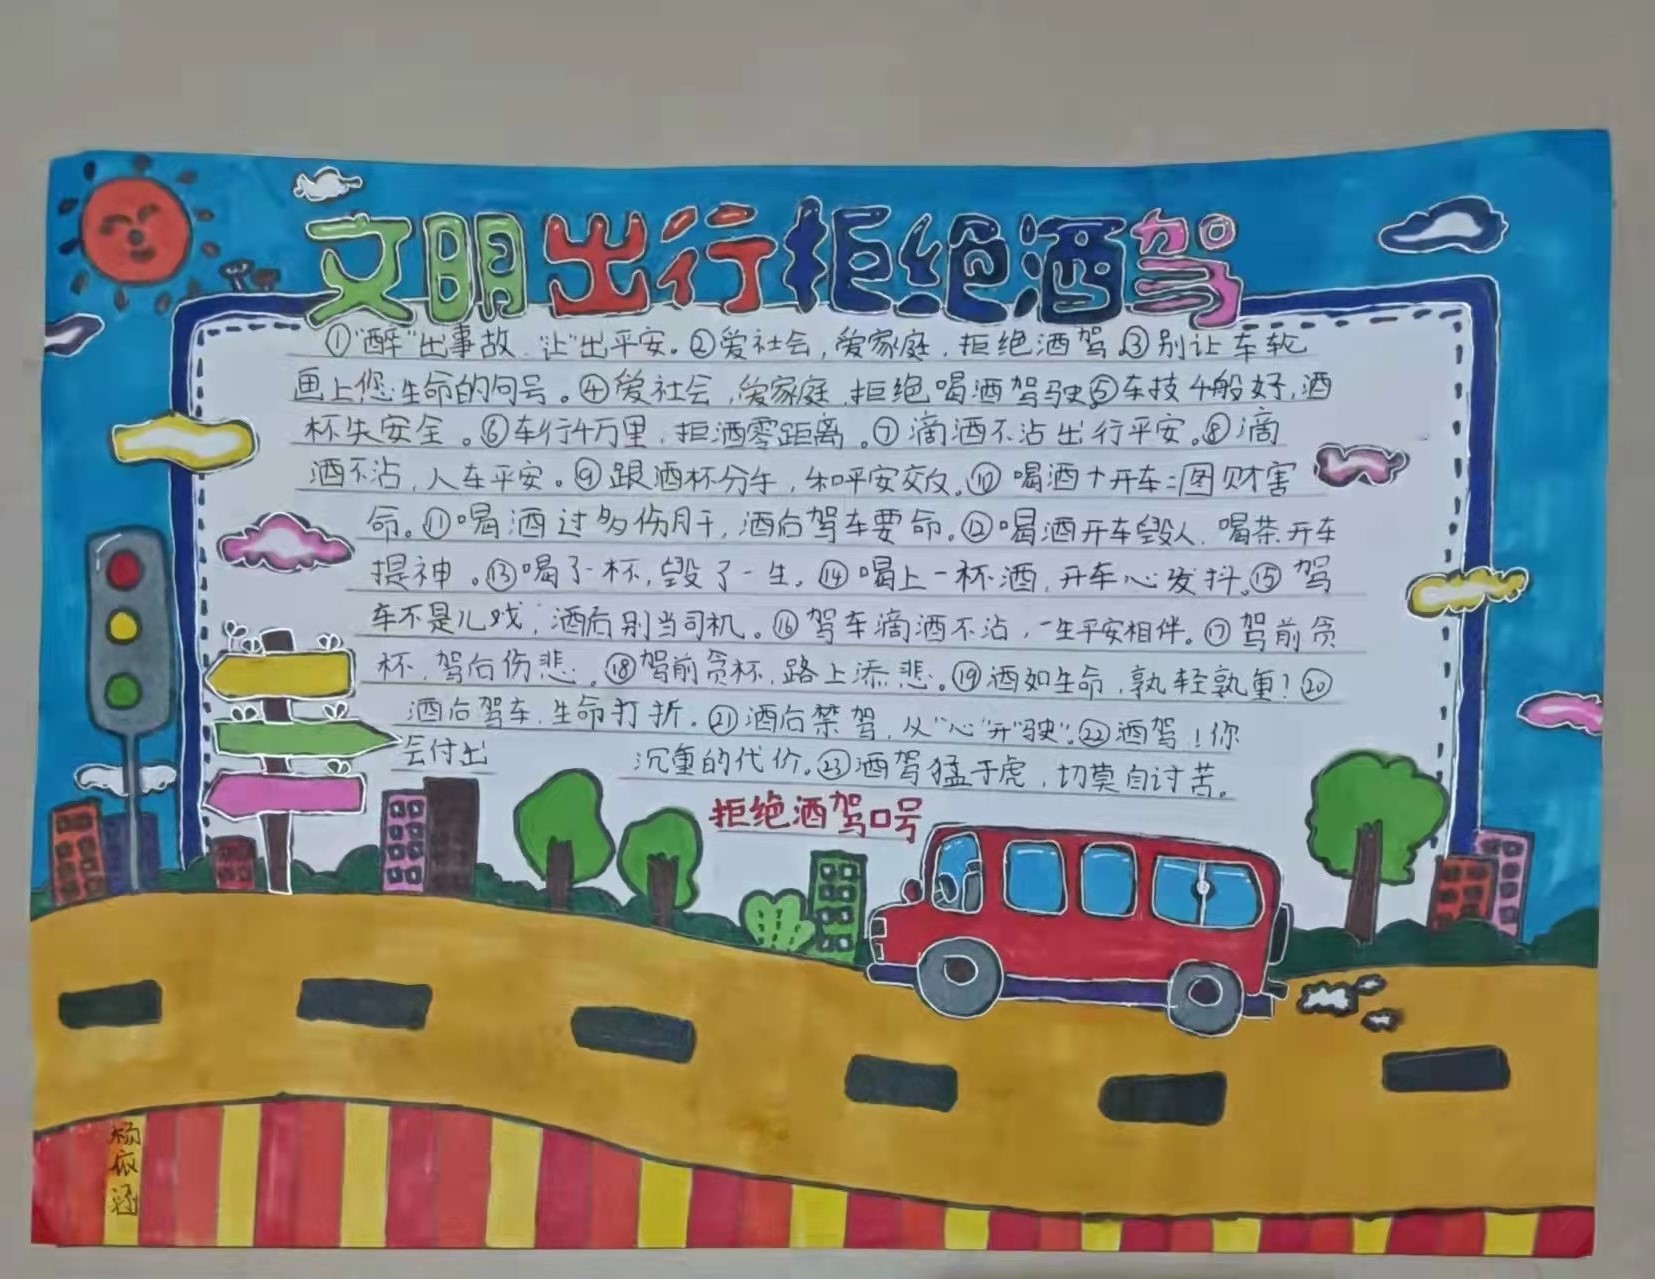 文明出行拒绝酒驾
①"醉"出事故,让"出平安。②爱社会,爱家庭,拒绝酒驾。③别让车轮
画上您生命的句号。④爱社会,爱家庭,拒绝喝酒驾驶。⑤车技4般好,酒
杯失安全。⑥车行4万里,拒酒零距离。⑦滴酒不沾出行平安。⑧滴
酒不沾,人车平安。⑨跟酒杯分手,和平安交友。⑩喝酒+开车=图财害
命。⑪喝酒过多伤肝,酒后驾车要命。⑫喝酒开车毁人,喝茶开车
提神。⑬喝了一杯,毁了一生。⑭喝上一杯酒,开车心发抖。⑮驾
车不是儿戏,酒后别当司机。⑯驾车滴酒不沾,一生平安相伴。⑰驾前贪
杯,驾后伤悲。⑱驾前贪杯,路上添悲。⑲酒如生命,孰轻孰重!⑳
酒后驾车,生命打折。㉑酒后禁驾,从"心"开"驶"。㉒酒驾!你
会付出 沉重的代价。㉓酒驾猛于虎,切莫自讨苦。
拒绝酒驾口号
杨依涵